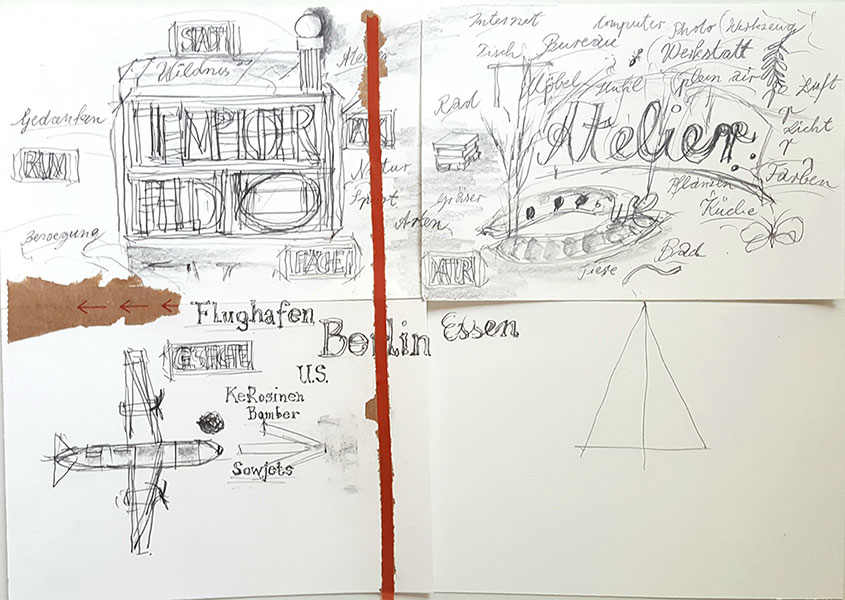 STADT
Wildnis
Atelier
Gedanken
TEMPLOR
RAUM
Natur
Sport
Arten
Bewegung
FLÄCHEN
Internet
Computer
Photo (Werkzeug)
Tisch
Bureau
(Werkstatt
Möbel
Stuhl
(plein air)
Luft
Rad
Atelier
Licht
Farben
Gräser
Pflanzen
Küche
NATUR
Tiere
Bad
Flughafen
Berlin
Essen
GESCHICHTE
U.S.
KeRosinen
Bomber
Sowjets